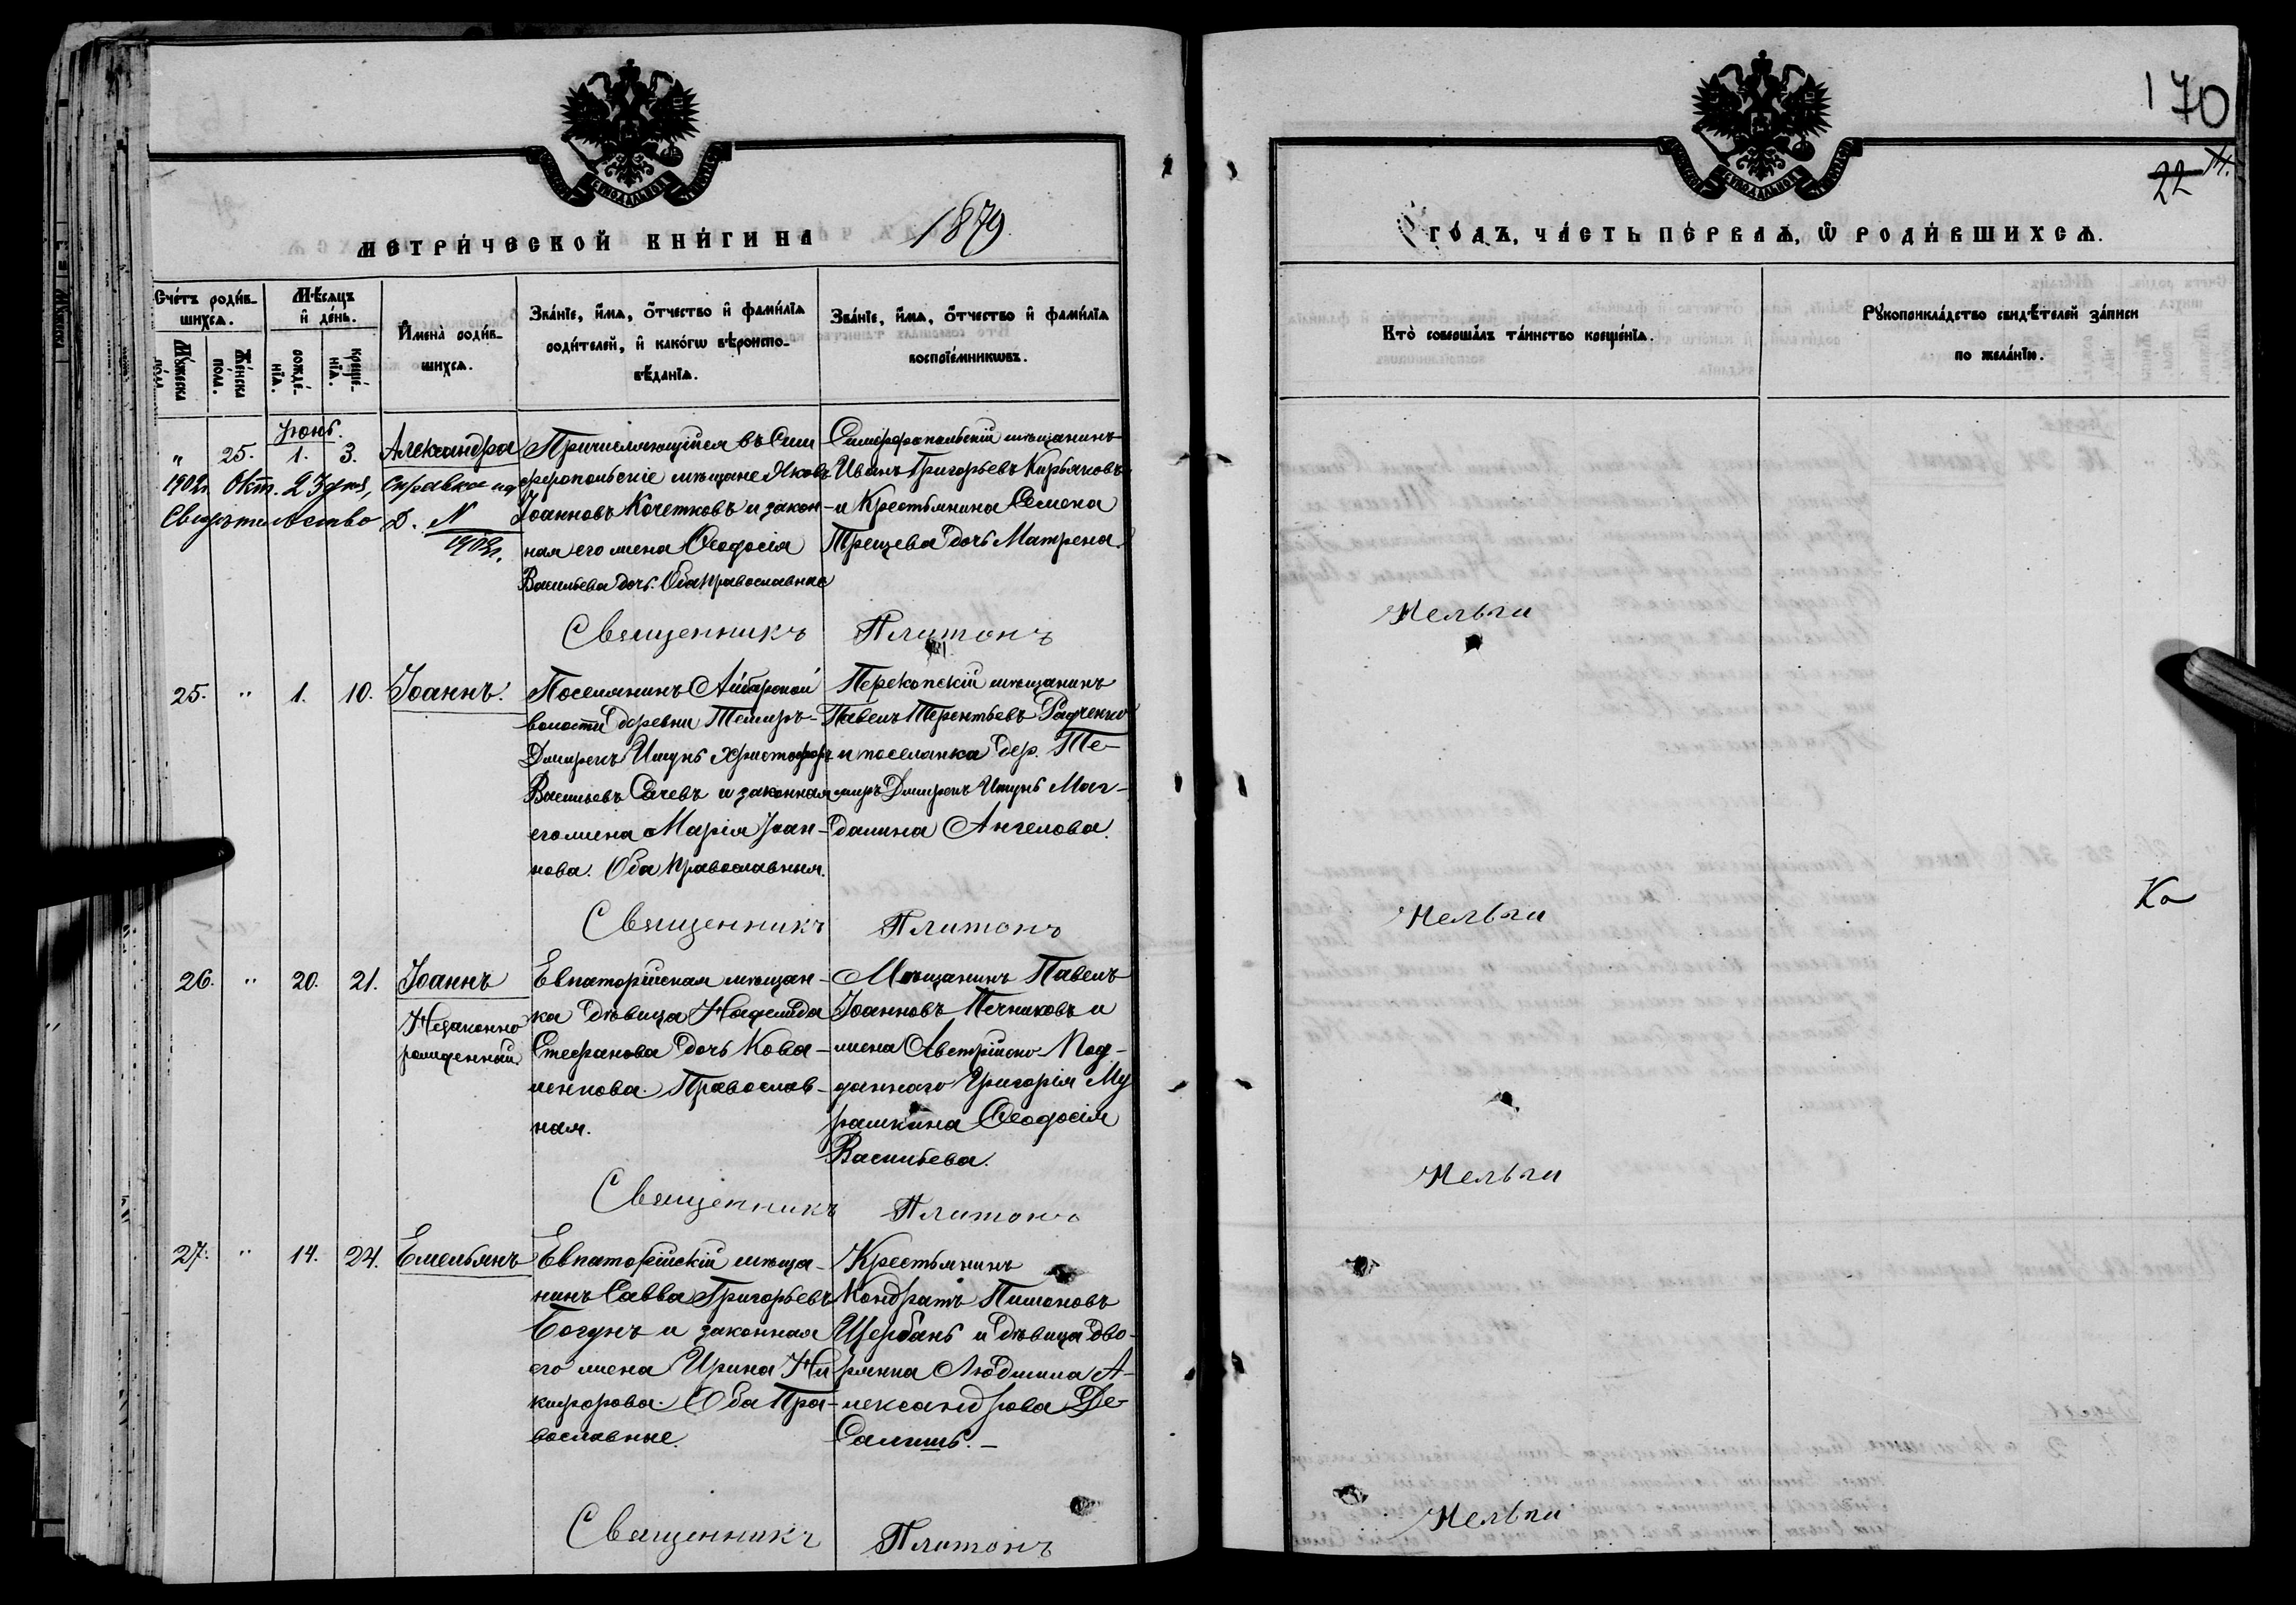 170
22
МЕТРИ́ЧЕСКОЙ КНИ́ГИ НА 1879
ГО́ДЪ, ЧА́СТЬ ПЕ́РВАѦ, Ѡ҆ РОДИ́ВШИХСѦ.
Сче́тъ роди́в-
шихсѧ.
Мꙋ́жеска
по́ла.
Же́нска
по́ла.
Мѣ́сѧцъ
и҆ де́нь.
рожде́-
нїѧ.
креще́-
нїѧ.
И҆мена̀ роди́в-
шихсѧ.
Зва́нїе, и҆́мѧ, ѻ҆́тчество и҆ фами́лїѧ
роди́телей, и҆ како́гѡ вѣроиспо-
вѣ́данїѧ.
Зва́нїе, и҆́мѧ, ѻ҆́тчество и҆ фами́лїѧ
воспрїе́мникѡвъ.
Кто̀ соверша́лъ та́инство креще́нїѧ.
Рꙋкоприкла́дство свидѣ́телей за́писи
по жела́нїю.
Іюнь.
" 25. 1. 3. Александра
1902г. Окт. 23 дня, справка на
Свидѣтельство д. N
1902г.
Причисляющійся въ Сим
феропольскіе мѣщане Яковъ
Іоанновъ Кочетковъ и закон-
ная его жена Ѳеодосія
Васильева дочь. Оба православные
Симферопольскій мѣщанинъ
Иванъ Григорьевъ Кирьяковъ
и Крестьянина Семена
Трещева дочь Матрена.
Священникъ Платонъ Мельги
25. " 1. 10. Іоаннъ.
Поселянинъ Айбарской
волости деревни Темиръ-
Джиренъ Ишунь Христофоръ
Васильевъ Сачевъ и законная
его жена Марія Іоан-
нова. Оба православныя.
Перекопскій мѣщанинъ
Павелъ Терентьевъ Радченко
и поселянка дер. Те-
миръ Джиренъ Ишунь Маг-
далина Ангелова.
Священникъ Платонъ Мельги
Ко
26. " 20. 21. Іоаннъ
Незаконно
рожденный.
Евпаторійская мѣщан-
ка дѣвица Надежда
Стефанова дочь Кова-
ленкова. Православ-
ная.
Мѣщанинъ Павелъ
Іоанновъ Печниковъ и
жена Австрійско-Под-
даннаго Григорія Му
рашкина Ѳеодосія
Васильева.
Священникъ Платонъ Мельги
27. " 14. 24. Емельянъ
Евпаторійскій мѣща-
нинъ Савва Григорьевъ
Богунъ и законная
его жена Ирина Ни
кифорова. Оба Пра-
вославные.
Крестьянинъ
Кондратъ Пимоновъ
Щербань и дѣвица дво-
рянка Людмила А-
лександрова Де-
Салишь. –
Священникъ Платонъ Мельги